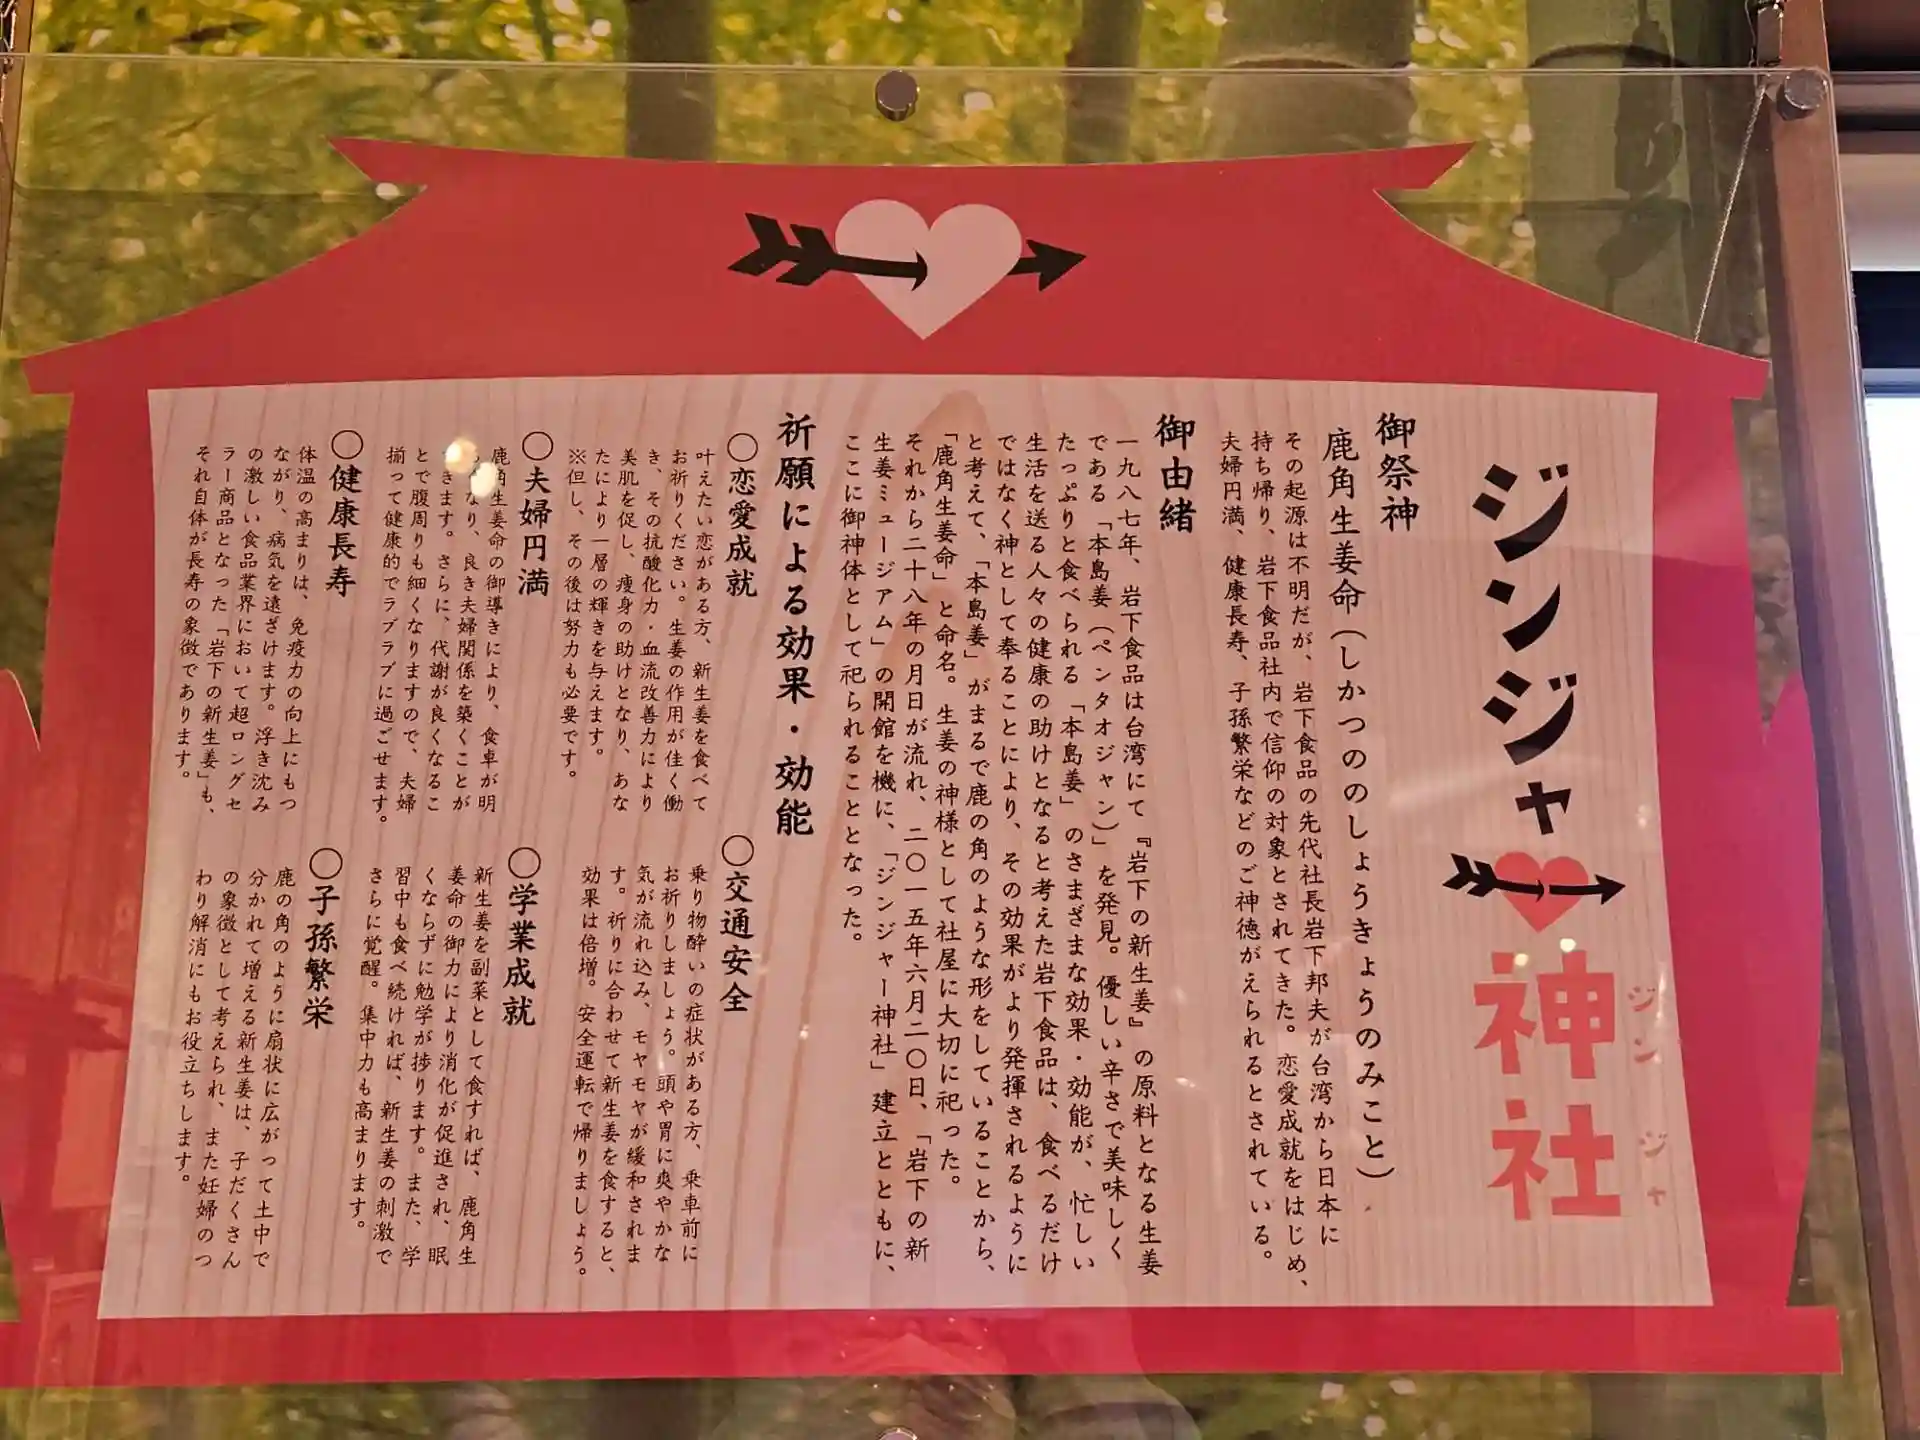 ジンジャー神社
ジンジャ
御祭神
鹿角生姜命（しかつののしょうきょうのみこと）
その起源は不明だが、岩下食品の先代社長岩下邦夫が台湾から日本に
持ち帰り、岩下食品社内で信仰の対象とされてきた。恋愛成就をはじめ、
夫婦円満、健康長寿、子孫繁栄などのご神徳がえられるとされている。
御由緒
一九八七年、岩下食品は台湾にて『岩下の新生姜』の原料となる生姜
である「本島姜（ペンタオジャン）」を発見。優しい辛さで美味しく
たっぷりと食べられる「本島姜」のさまざまな効果・効能が、忙しい
生活を送る人々の健康の助けとなると考えた岩下食品は、食べるだけ
ではなく神として奉ることにより、その効果がより発揮されるように
と考えて、「本島姜」がまるで鹿の角のような形をしていることから、
「鹿角生姜命」と命名。生姜の神様として社屋に大切に祀った。
それから二十八年の月日が流れ、二〇一五年六月二〇日、「岩下の新
生姜ミュージアム」の開館を機に、「ジンジャー神社」建立とともに、
ここに御神体として祀られることとなった。
祈願による効果・効能
〇恋愛成就
叶えたい恋がある方、新生姜を食べて
お祈りください。生姜の作用が佳く働
き、その抗酸化力・血流改善力により
美肌を促し、痩身の助けとなり、あな
たにより一層の輝きを与えます。
※但し、その後は努力も必要です。
〇交通安全
乗り物酔いの症状がある方、乗車前に
お祈りしましょう。頭や胃に爽やかな
気が流れ込み、モヤモヤが緩和されま
す。祈りに合わせて新生姜を食すると、
効果は倍増。安全運転で帰りましょう。
〇夫婦円満
鹿角生姜命の御導きにより、食卓が明
なり、良き夫婦関係を築くことが
きます。さらに、代謝が良くなるこ
とで腹周りも細くなりますので、夫婦
揃って健康的でラブラブに過ごせます。
〇学業成就
新生姜を副菜として食すれば、鹿角生
姜命の御力により消化が促進され、眠
くならずに勉学が捗ります。また、学
習中も食べ続ければ、新生姜の刺激で
さらに覚醒。集中力も高まります。
〇健康長寿
体温の高まりは、免疫力の向上にもつ
ながり、病気を遠ざけます。浮き沈み
の激しい食品業界において超ロングセ
ラー商品となった「岩下の新生姜」も、
それ自体が長寿の象徴であります。
〇子孫繁栄
鹿の角のように扇状に広がって土中で
分かれて増える新生姜は、子だくさん
の象徴として考えられ、また妊婦のつ
わり解消にもお役立ちします。